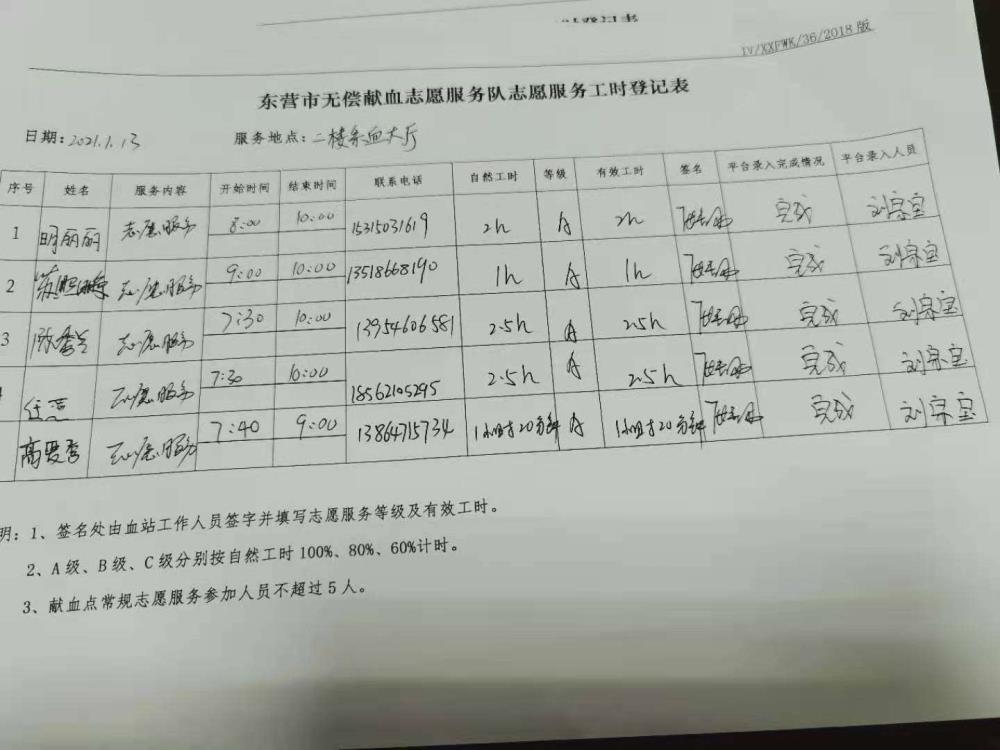 IV/XXFWK/36/2018版
东营市无偿献血志愿服务队志愿服务工时登记表
日期:2021.1.13 服务地点:二楼采血大厅
序号 姓名 服务内容 开始时间 结束时间 联系电话 自然工时 等级 有效工时 签名 平台录入完成情况 平台录入人员
1 明丽丽 志愿服务 8:00 10:00 15315031619 2h A 2h 完成 刘宗宝
2 志愿服务 9:00 10:00 13518668190 1h A 1h 完成 刘宗宝
3 志愿服务 7:30 10:00 13954606581 2.5h A 2.5h 完成 刘宗宝
志愿服务 7:30 10:00 18562105295 2.5h A 2.5h 完成 刘宗宝
高爱香 志愿服务 7:40 9:00 13864715734 1小时20分钟 A 1小时20分钟 完成 刘宗宝
明:1、签名处由血站工作人员签字并填写志愿服务等级及有效工时。
2、A级、B级、C级分别按自然工时100%、80%、60%计时。
3、献血点常规志愿服务参加人员不超过5人。